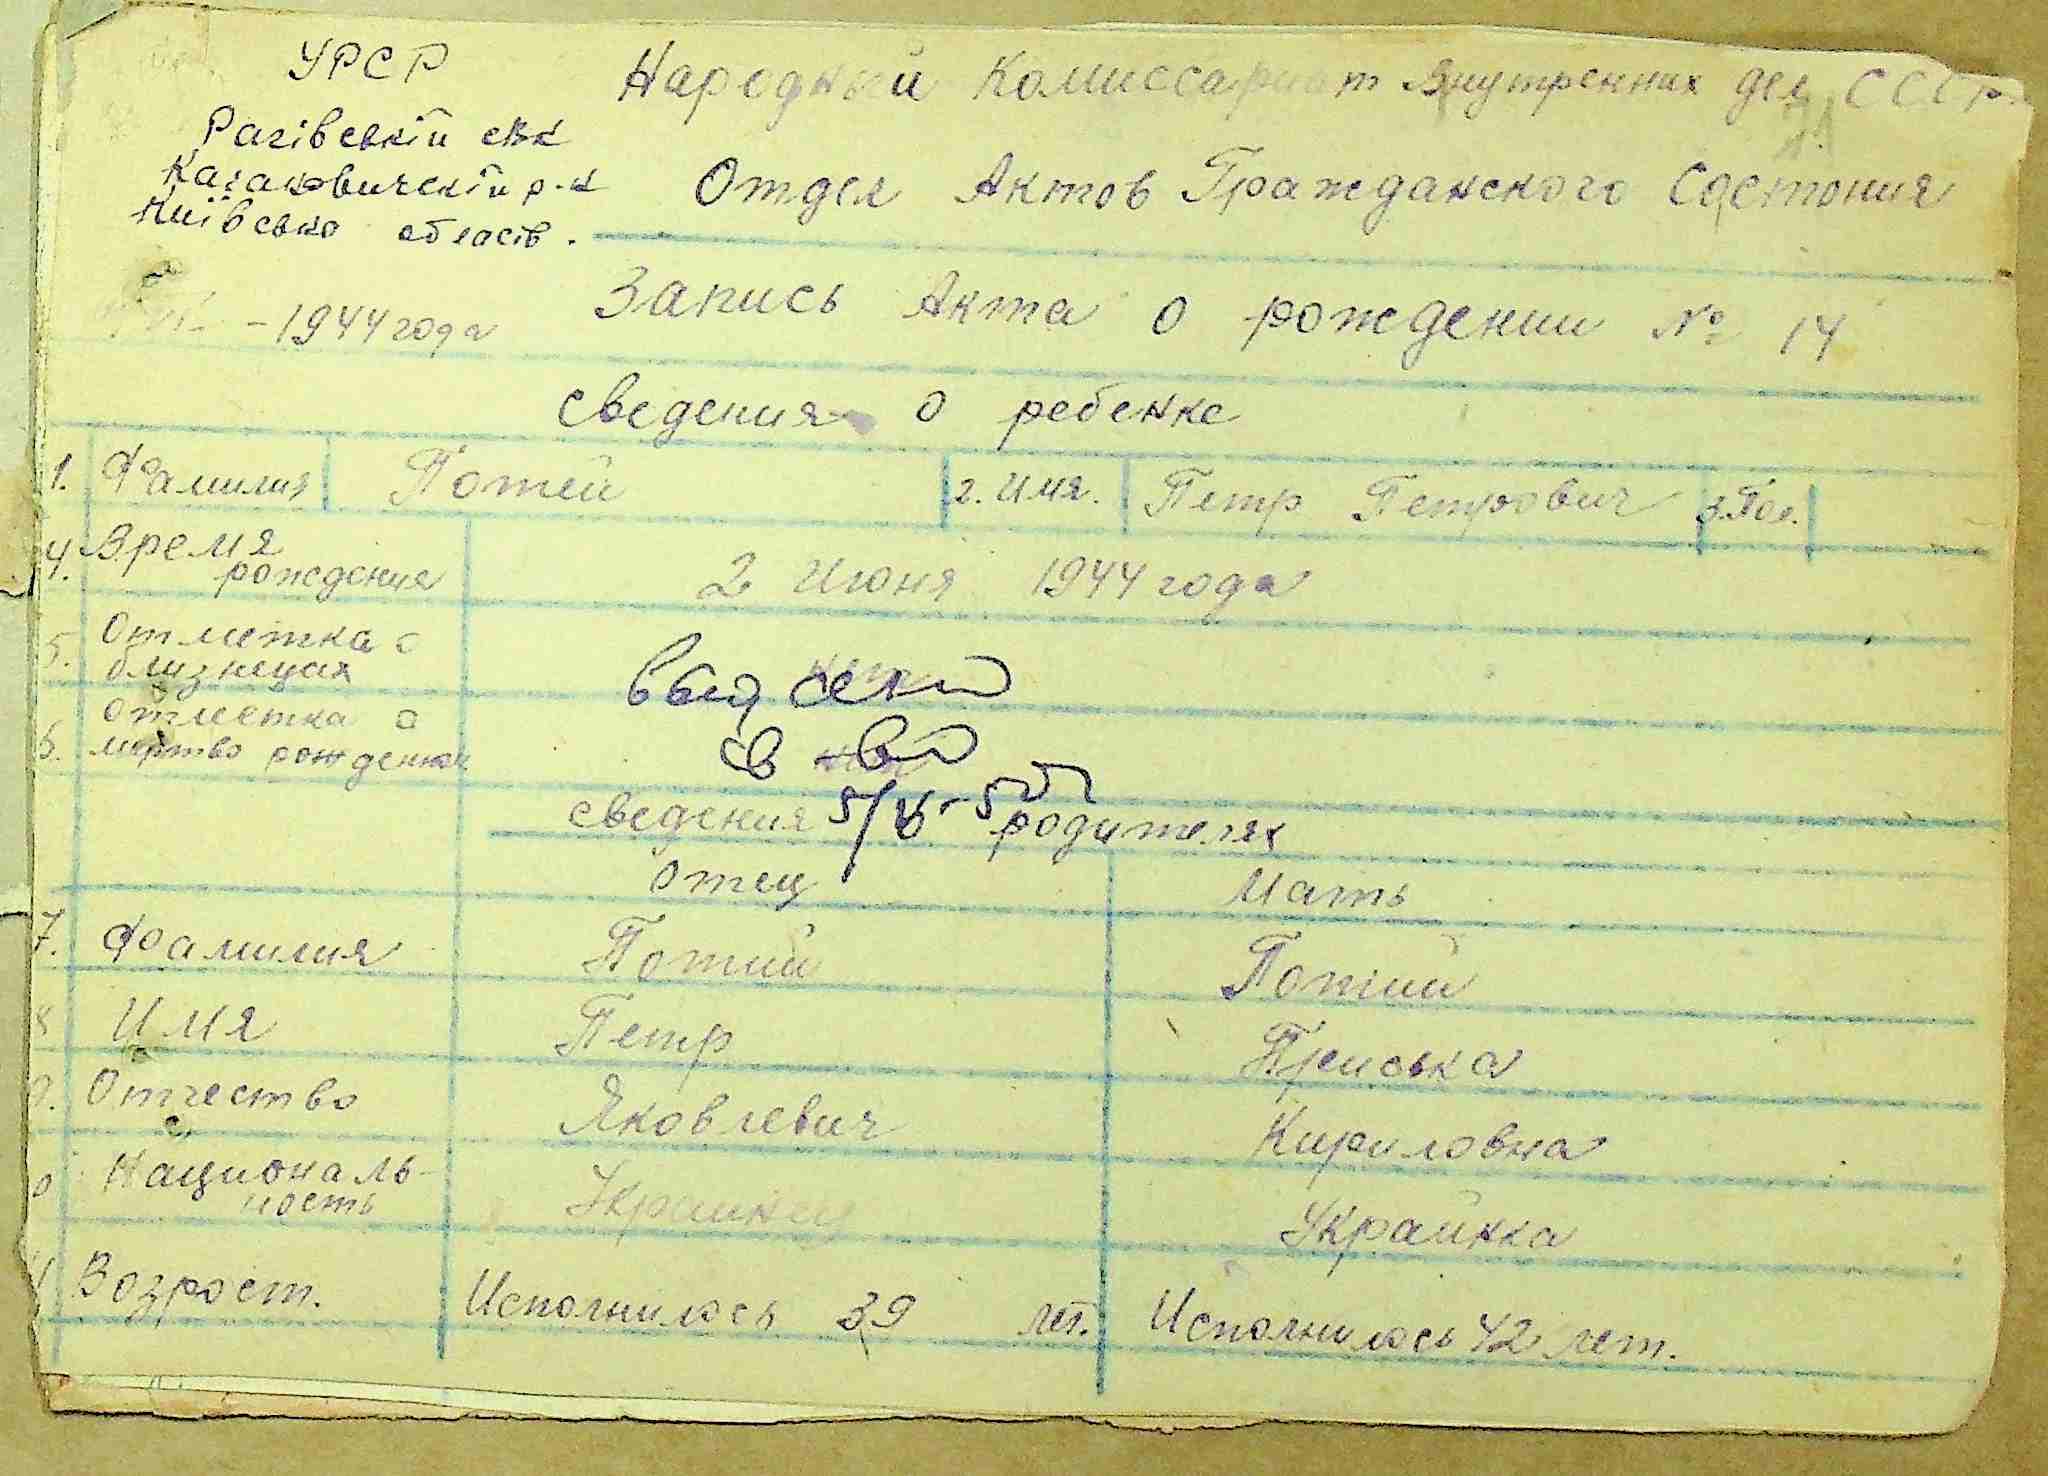 УРСР
Народный Комиссариат Внутренних дел СССР
Рагівський
Кагановичский р-н
Київсько область.
Отдел Актов Гражданского Состония
-1944 года
Запись Акта о рождении № 14
Сведения о ребенке
1. Фамилия Потей 2. Имя. Петр Петрович 3. Пол.
4. Время рождения 2 Июня 1944 года
5. Отметка о близнецах
6. Отметка о мертво рожденном
сведения родителях
Отец Мать
7. Фамилия Потий Потий
8 Имя Петр Приська
9. Отчество Яковлевич Кириловна
Националь-
ность Украинец Украинка
Возрост. Исполнилось 39 лет. Исполнилось 42 лет.